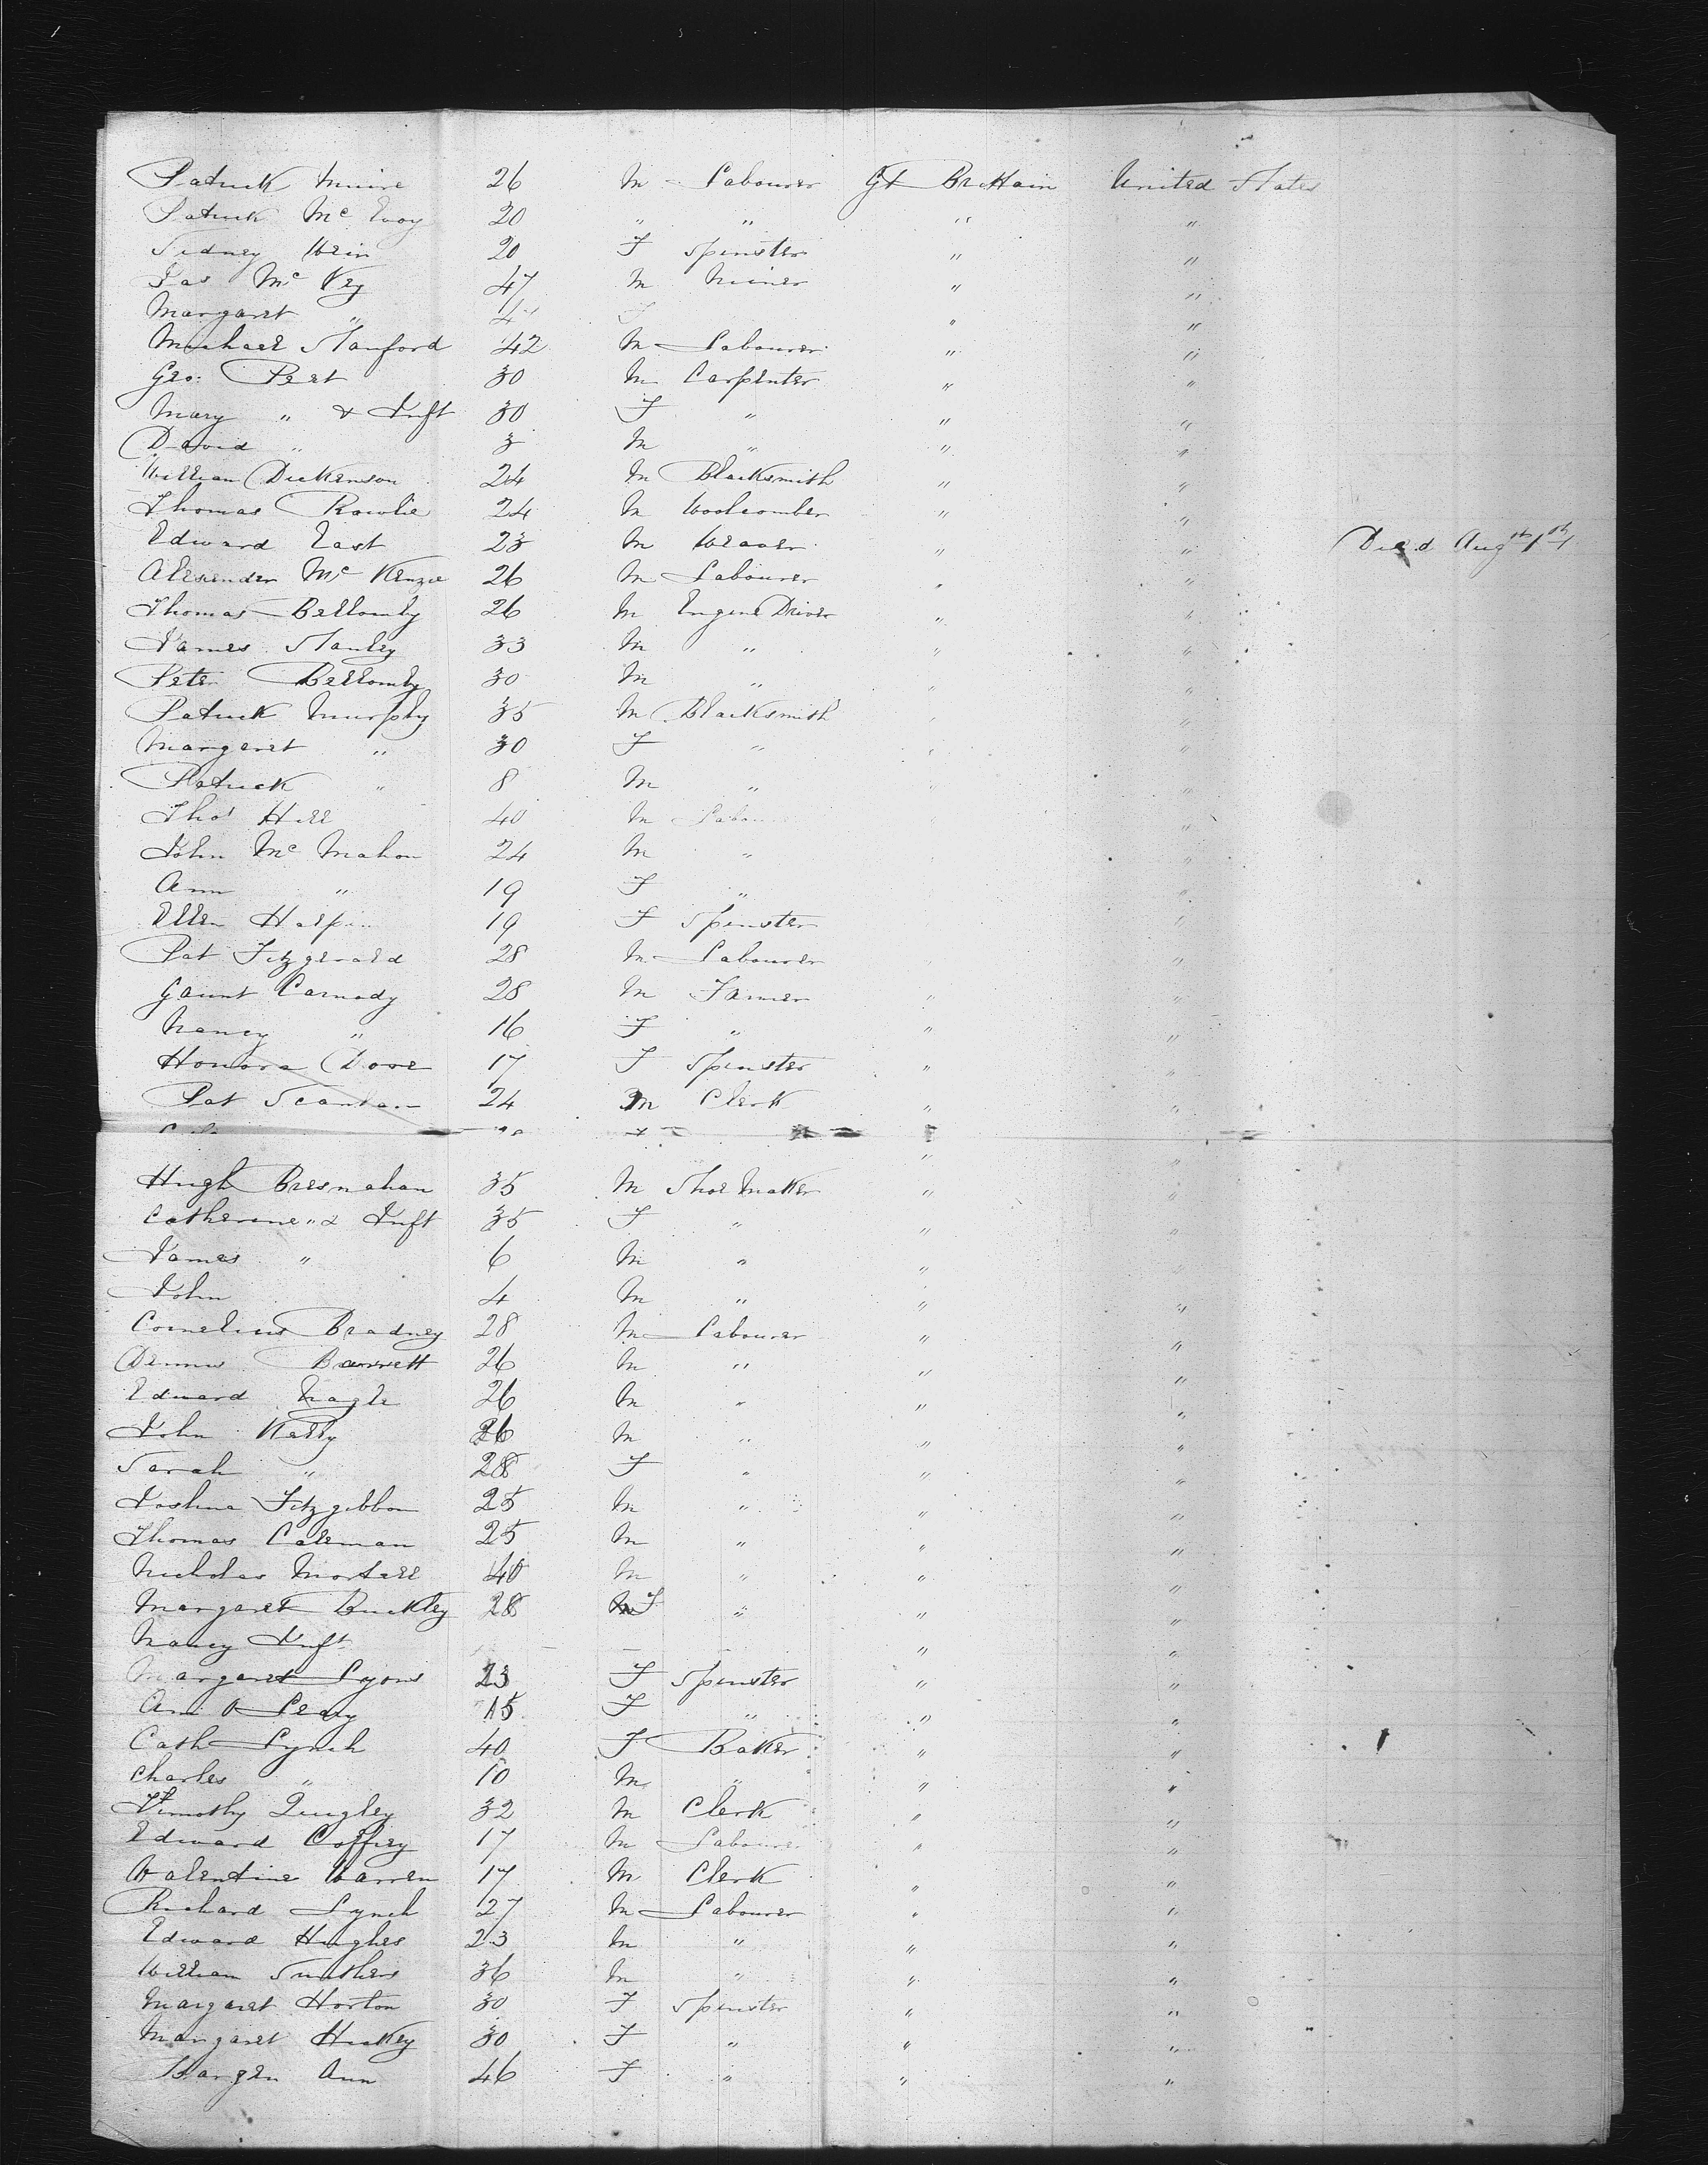 Patrick Muire 26 M Labourer Gt Brittain United States
Patrick Mc Evoy 20 " " " "
Sidney Wein 20 F Spinster " "
Jas Mc Vey 47 M Miner " "
Margaret " F " "
Michael Stanford 42 M Labourer " "
Geo: Peet 30 M Carpenter " "
Mary " & Inft 30 F " " "
David " 3 M " " "
William Dickenson 24 M Blacksmith " "
Thomas Rowlie 24 M Woolcomber " "
Edward East 23 M Weaver " " Died Augst 1st
Alexender Mc Kenzie 26 M Labourer " "
Thomas Bellomby 26 M Engine Driver " "
James Stanley 33 M " " "
Peter Bellomby 30 M " " "
Patrick Murphy 35 M Blacksmith " "
Margeret " 30 F " " "
Patrick " 8 M " "
Thos Hill 40 M Labour "
John Mc Mahon 24 M " "
Ann " 19 F " "
Ellen Halpin 19 F Spinster "
Pat Fitzgerald 28 M Labourer "
Gaunt Carmody 28 M Farmer " "
Nancy " 16 F " " "
Honora Dore 17 F Spinster " "
Pat Scanlan 24 M Clerk " "
" "
Hugh Bresnahan 35 M Shoe Maker " "
Catherine " & Inft 35 F " " "
James " 6 M " " "
John 4 M " " "
Cornelius Bradney 28 M Labourer " "
Dennis Barrett 26 M " " "
Edward Nagle 26 M " " "
John Kelly 26 M " " "
Sarah " 28 F " " "
Joshua Fitzgibbon 25 M " " "
Thomas Coleman 25 M " " "
Nicholas Mortell 40 M " " "
Margaret Buckley 28 F " " "
Nancy Inft — — " "
Margaret Lyons 23 F Spinster " "
Ann O Leary 15 F " " "
Cath Lynch 40 F Baker " "
Charles " 10 M " " "
Timothy Quigley 32 M Clerk " "
Edward Coffey 17 M Labourer " "
Valentine Warren 17 M Clerk " "
Richard Lynch 27 M Labourer " "
Edward Hughes 23 M " " "
William Smithers 36 M " " "
Margaret Horton 30 F Spinster " "
Margaret Hickey 30 F " " "
Bargen Ann 46 F " " "